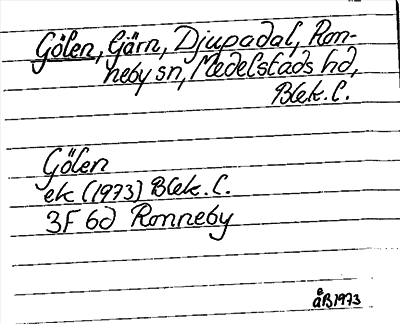 Gölen, Gärn, Djupadal, Ron-
neby sn, Medelstads hd,
Blek. l.
Gölen
ek (1973) Blek. l.
3F 6d Ronneby
åB1973